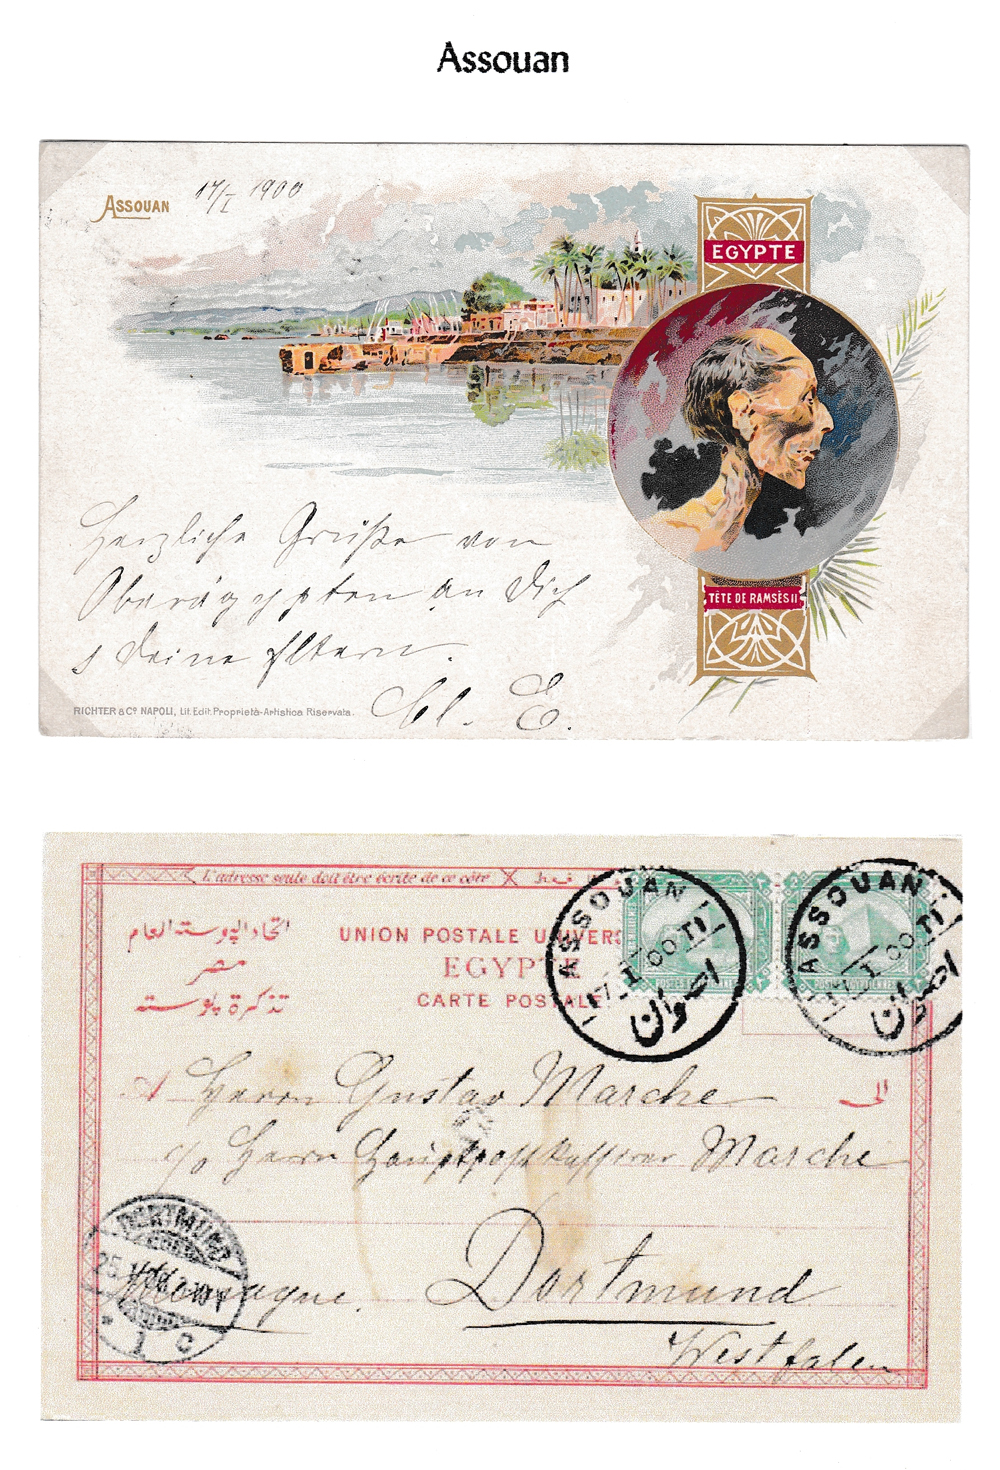 Assouan
ASSOUAN
17/I 1900
EGYPTE
TÊTE DE RAMSÈS II
Herzliche Grüße von
Oberägypten an Dich
& Deine Eltern.
E.
RICHTER & Cº NAPOLI, Lit. Edit. Proprietà-Artistica Riservata.
L'adresse seule doit être écrite de ce côté
اتحاد البوسته العام
UNION POSTALE UNIVERS
مصر
EGYPTE
تذكرة بوسته
CARTE POSTALE
ASSOUAN
17 I 00 T1
اصوان
ASSOUAN
I 00 T1
اصوان
A
Herrn Gustav Marche
الى
c/o Herrn Hauptpostkassierer Marche
DORTMUND
25.1.00
1 c
Allemagne.
Dortmund
Westfalen